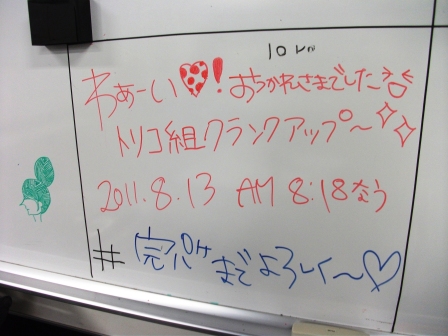 10
わぁーい♥! おちかれさまでしたー
トリコ組クランクアップ〜
2011.8.13 AM 8:18なう
# 完パケまでよろしく〜♡